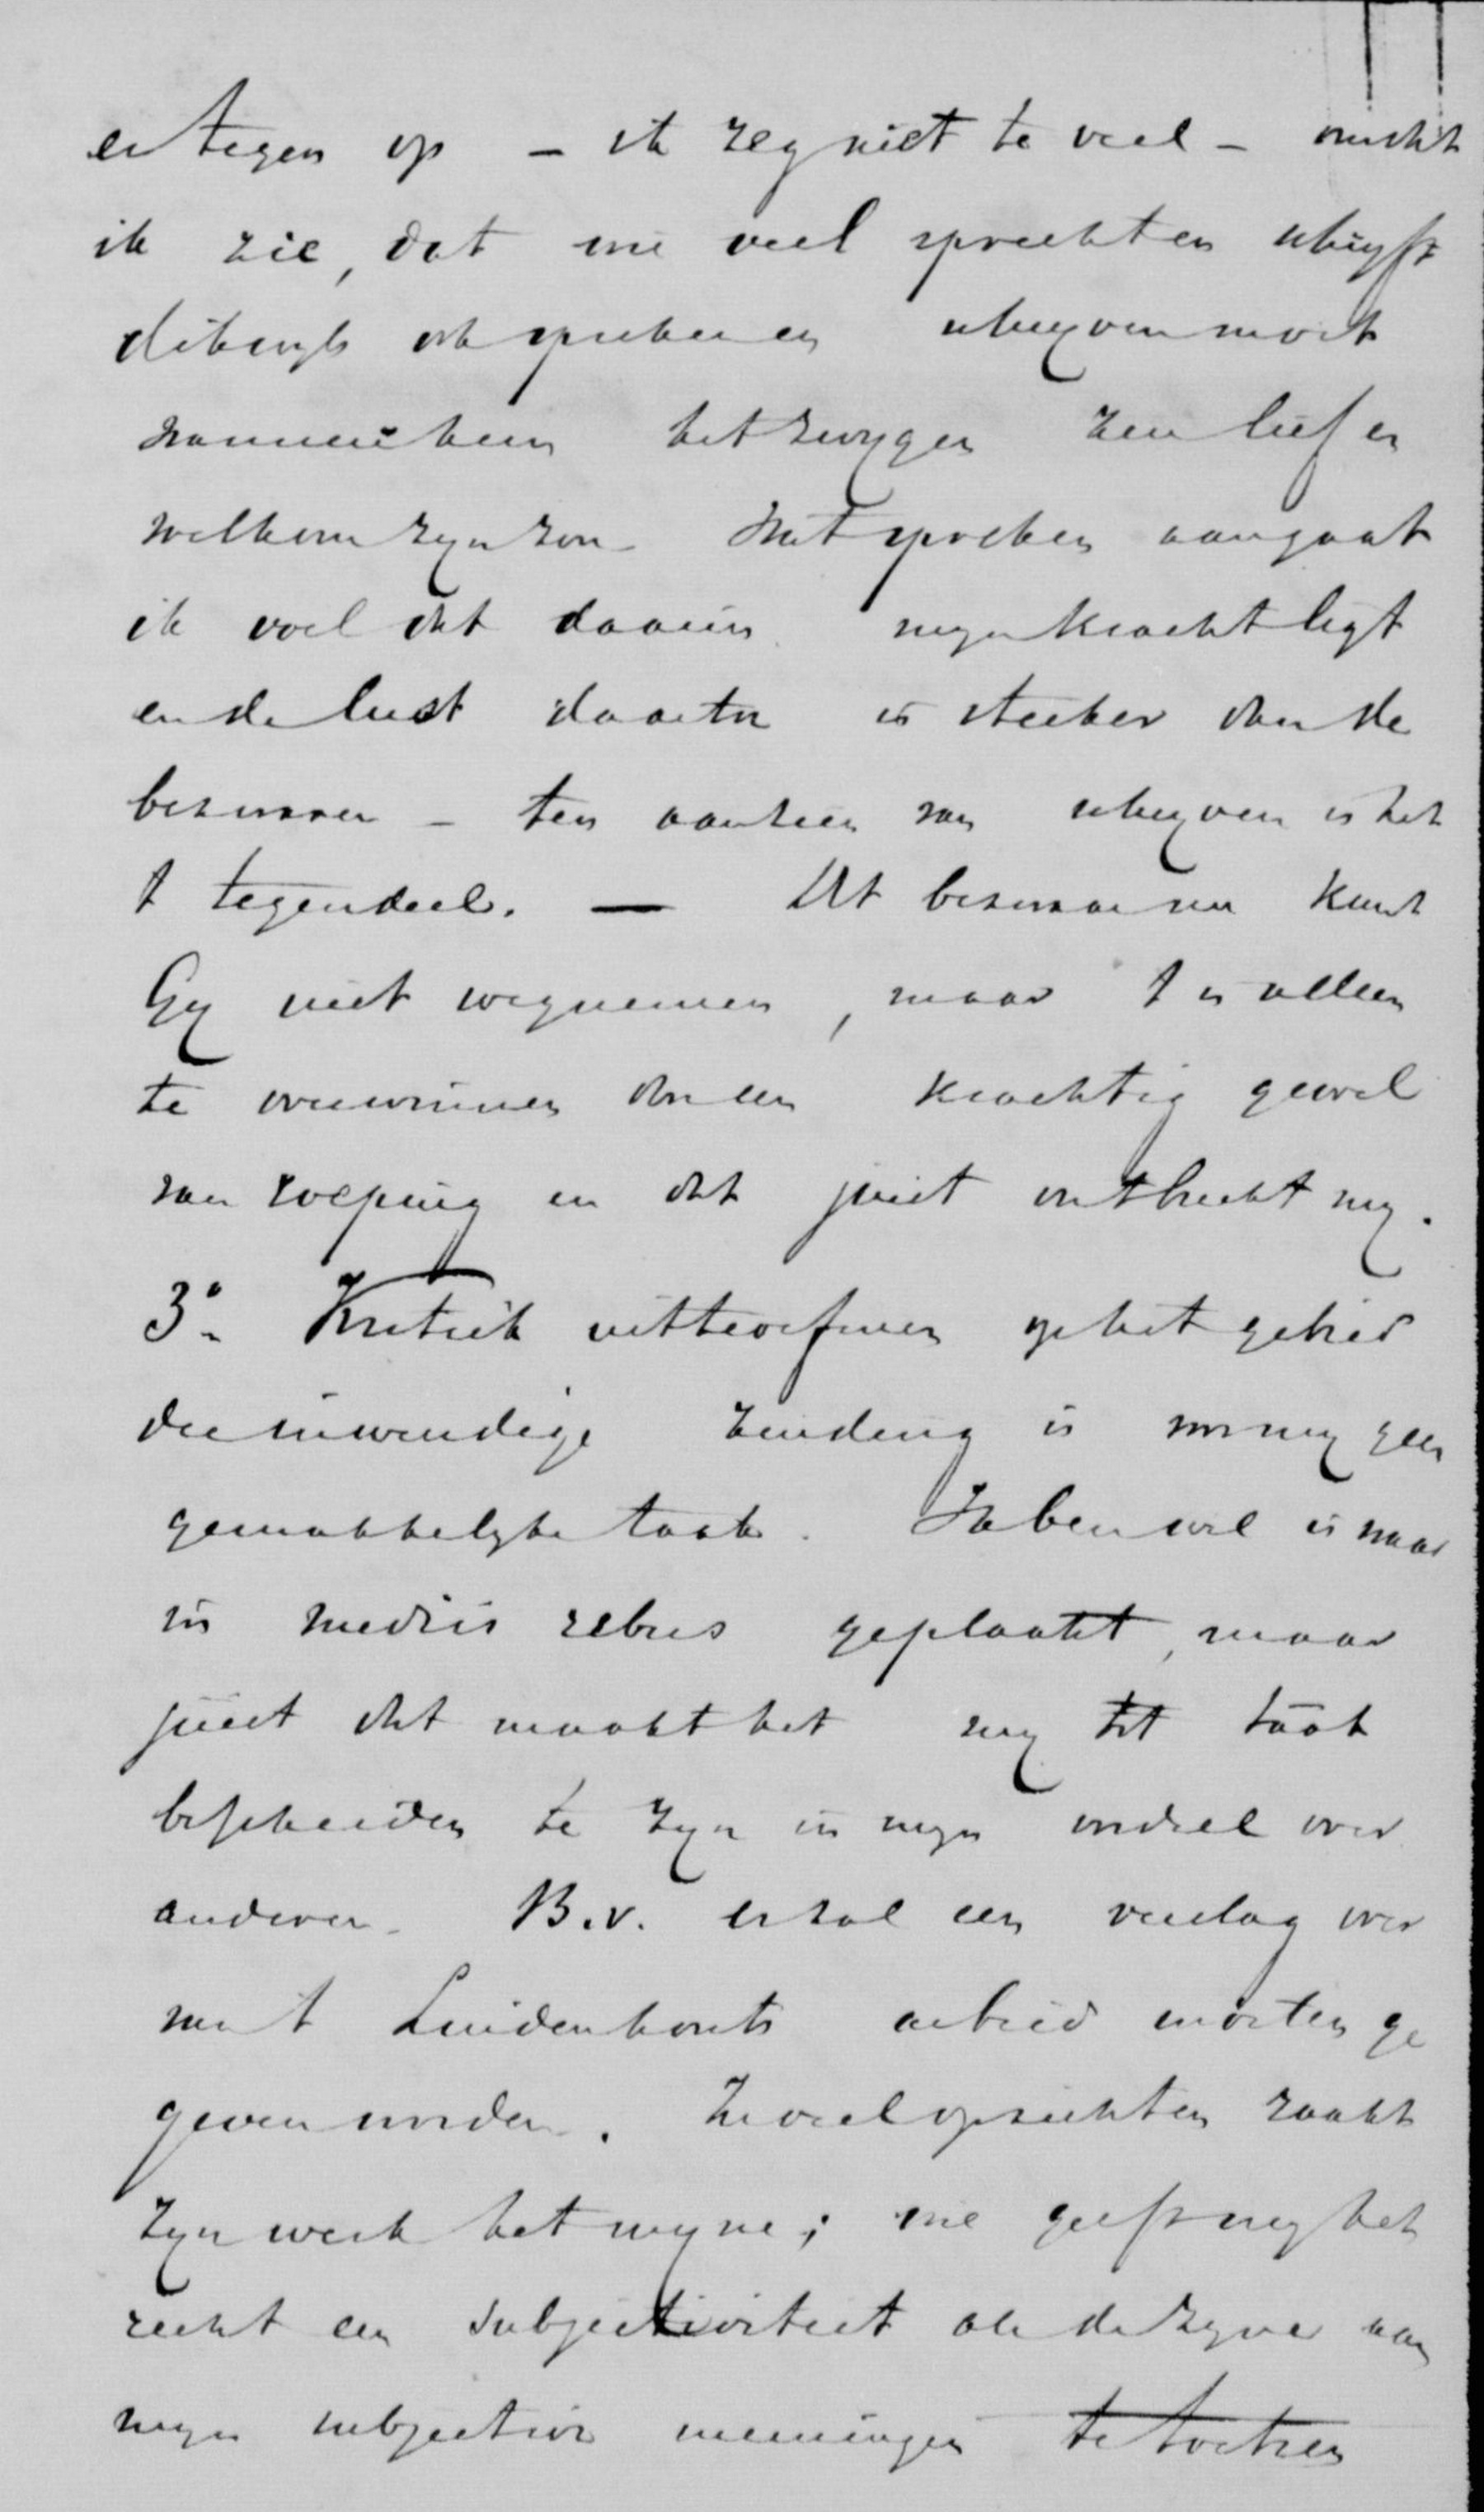 er tegen op – ik zeg niet te veel – omdat
ik zie, dat wie veel spreekt en schryft
dikwyls ook spreken en schryven moet
wanneer hem het zwygen zeer lief en
welkom zyn zou. Wat spreken aangaat
ik voel dat daarin myn kracht ligt
en de lust daartoe is sterker dan de
bezwaren – ten aanzien van schryven is het
't tegendeel. — Dit bezwaar nu kunt
Gy niet wegnemen, maar 't is alleen
te overwinnen door een krachtig gevoel
van roeping en dat juist ontbreekt my.
3o. Kritiek uitteoefenen op het gebied
der inwendige zending is voor my geen
gemakkelyke taak. Ik ben wel is waar
in mediis rebus geplaatst, maar
juist dat maakt het my tot taak
bescheiden te zyn in myn oordeel over
anderen. B.v. er zal een verslag over
van 't Lindenhouts arbeid moeten ge
geven worden. In veel opzichten raakt
zyn werk het myne; wie geeft my het
recht een subjectiviteit als de zyne aan
myn subjectieve meeningen te toetsen